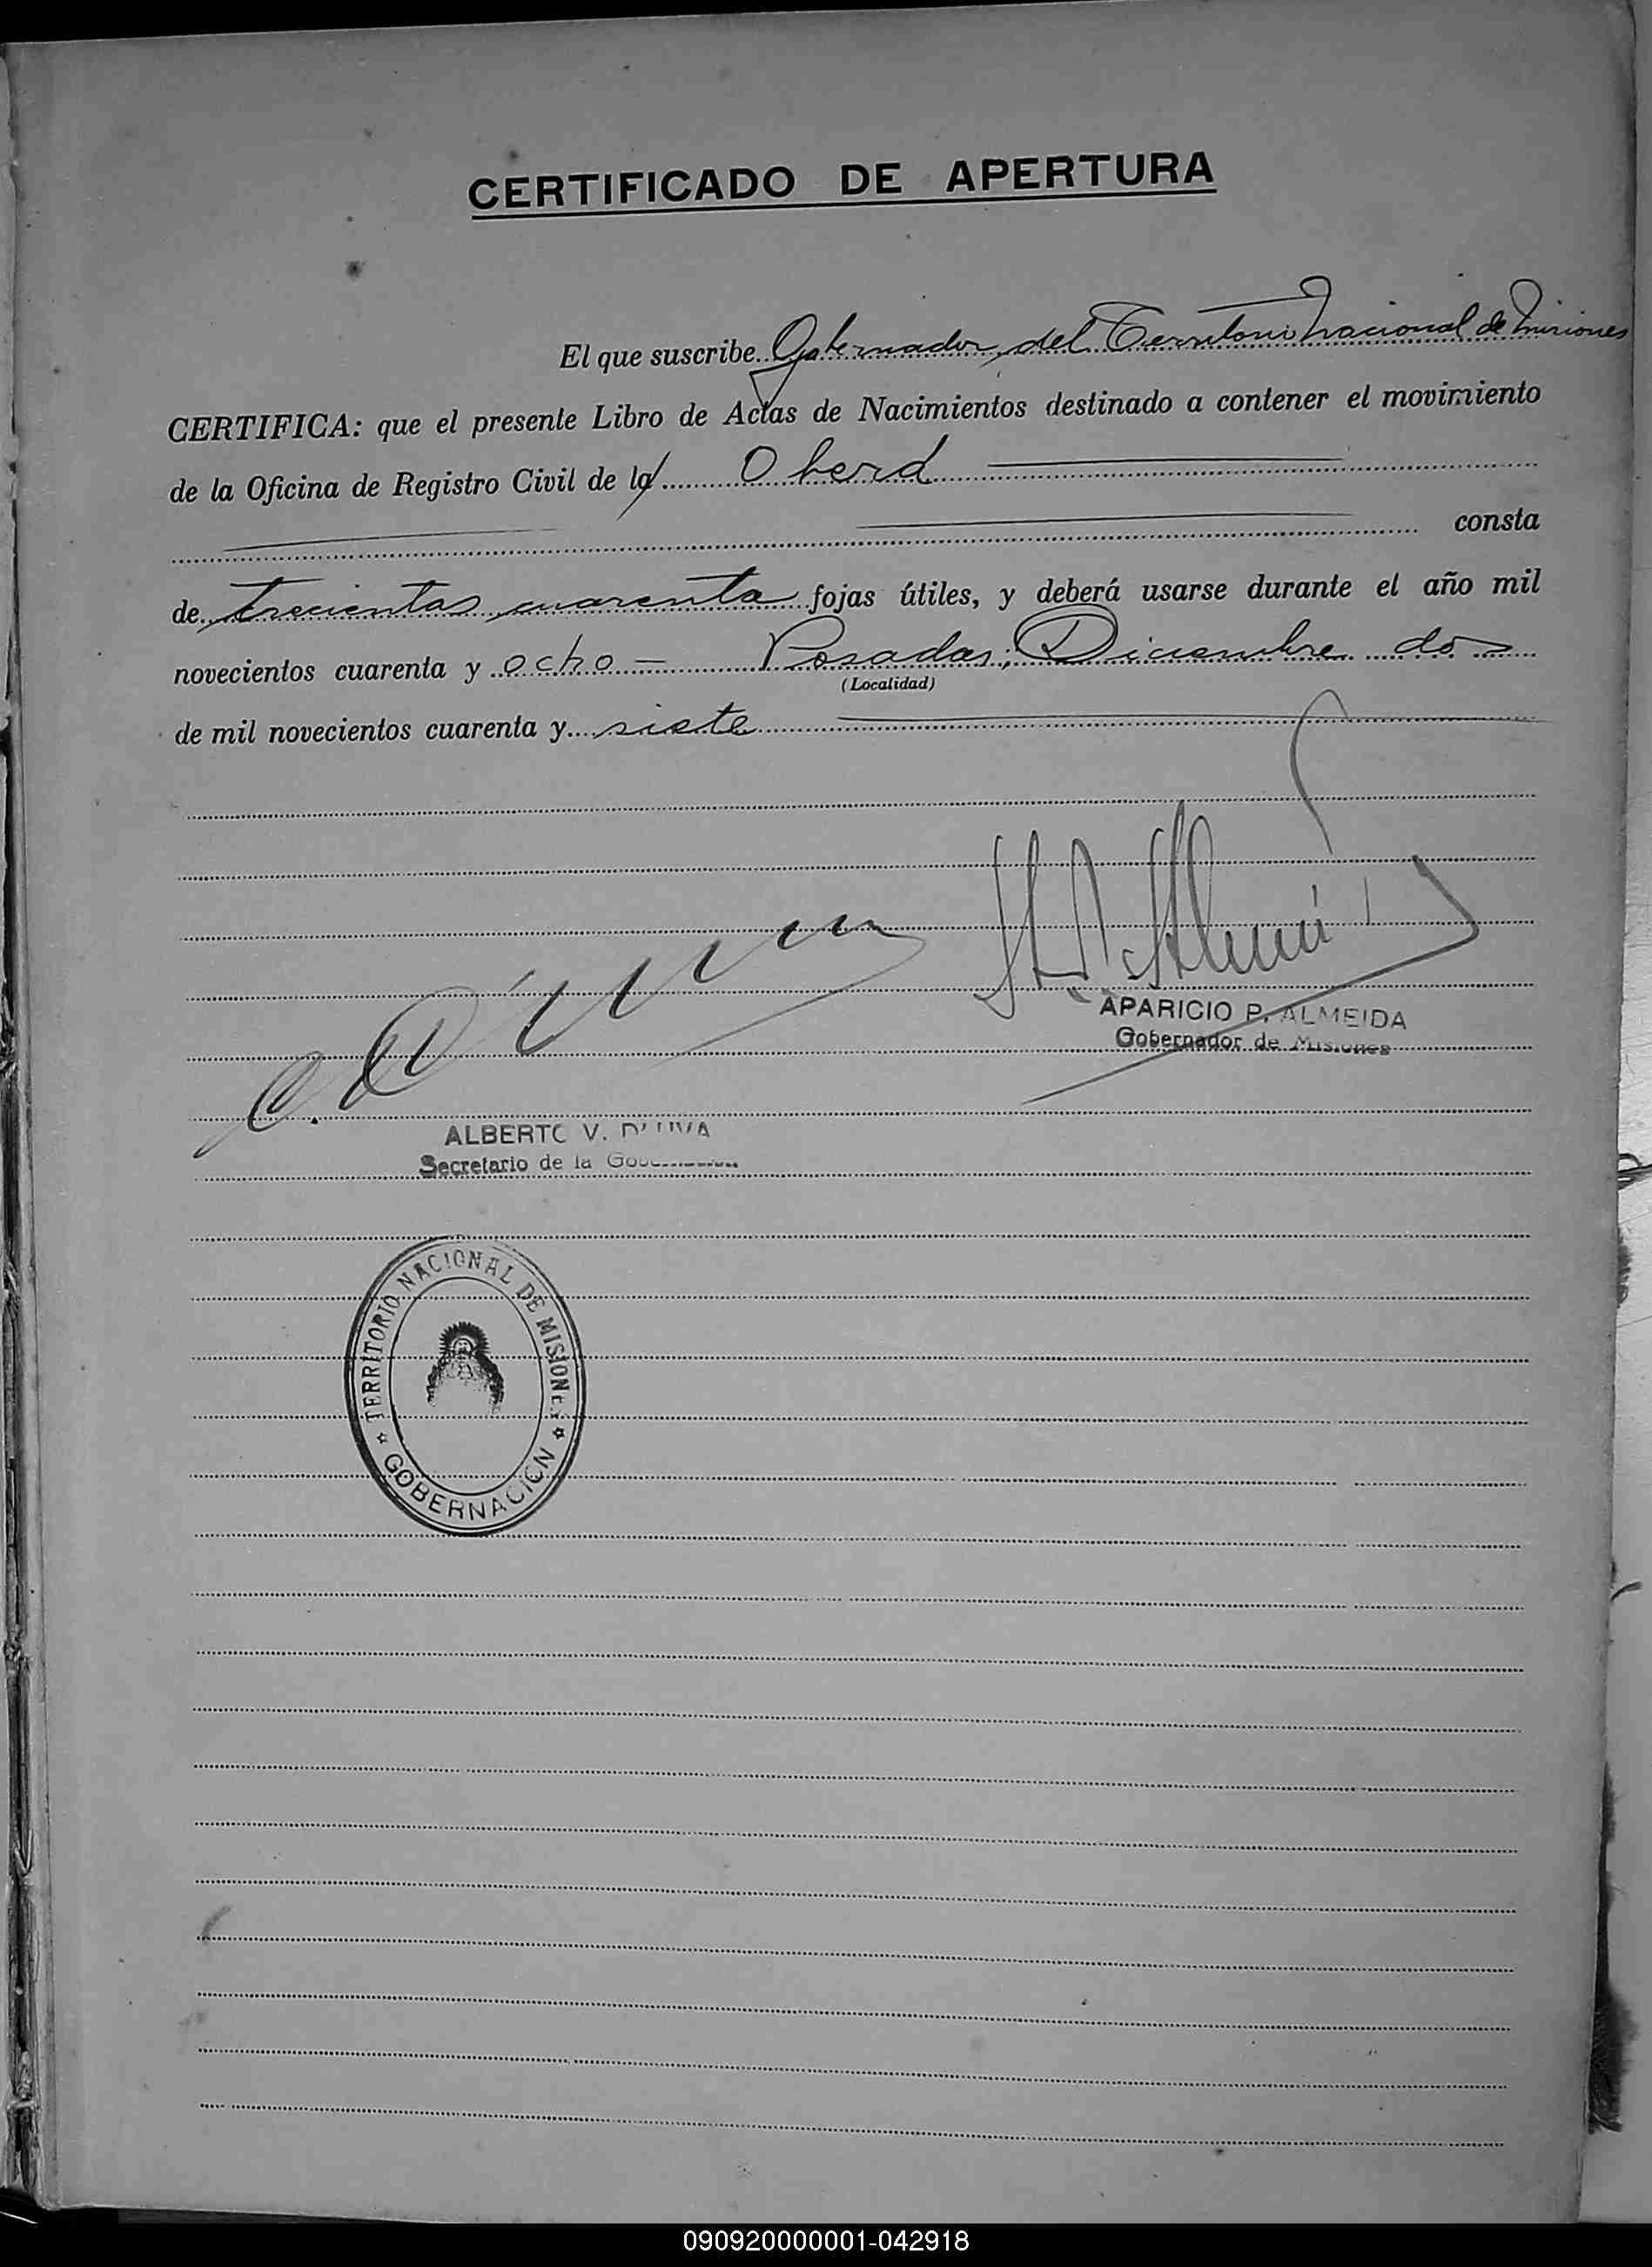 CERTIFICADO DE APERTURA
El que suscribe Gobernador del Territorio Nacional de Misiones
CERTIFICA: que el presente Libro de Actas de Nacimientos destinado a contener el movimiento
de la Oficina de Registro Civil de la Oberá
consta
de trecientas cuarenta fojas útiles, y deberá usarse durante el año mil
novecientos cuarenta y ocho — Posadas, Diciembre dos
(Localidad)
de mil novecientos cuarenta y siete
APARICIO P. ALMEIDA
Gobernador de Misiones
ALBERTO V.
Secretario de la
TERRITORIO NACIONAL DE MISIONES
GOBERNACION
090920000001-042918